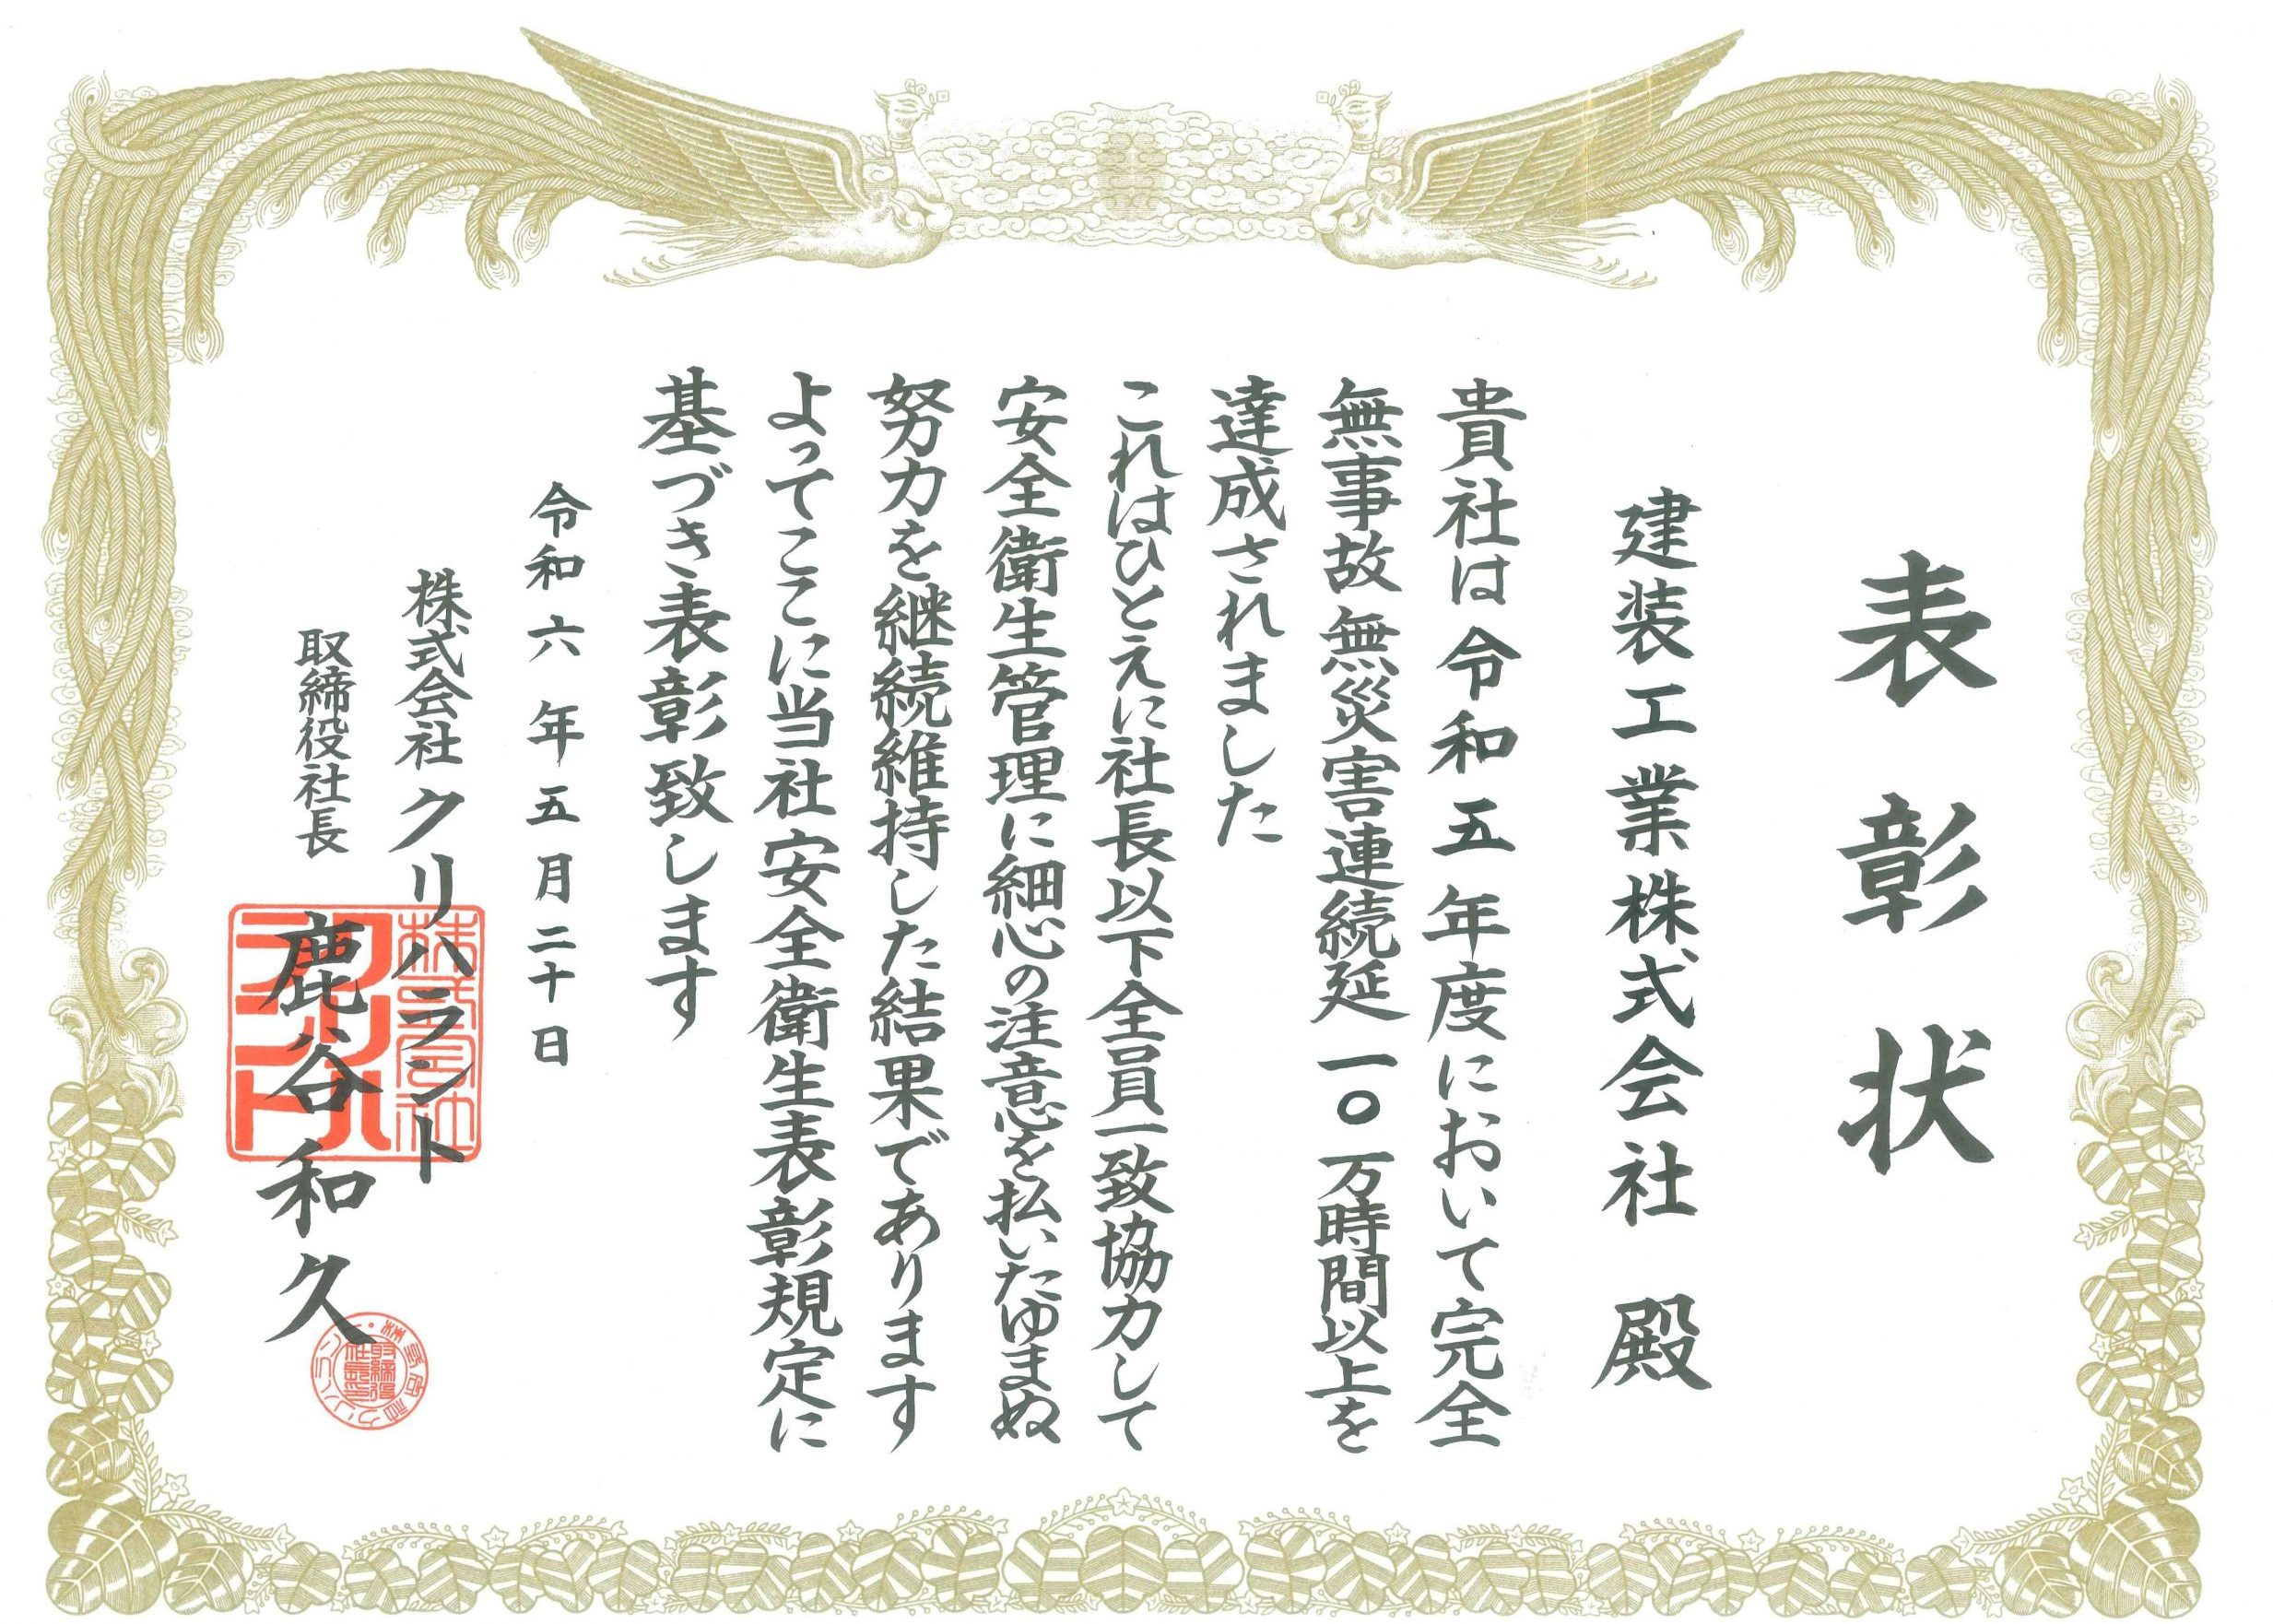 表彰状
建装工業株式会社 殿
貴社は令和五年度において完全
無事故無災害連続延一〇万時間以上を
達成されました
これはひとえに社長以下全員一致協力して
安全衛生管理に細心の注意を払いたゆまぬ
努力を継続維持した結果であります
よってここに当社安全衛生表彰規定に
基づき表彰致します
令和六年五月二十日
株式会社クリハラント
取締役社長 鹿谷和久
株式会社クリハラント